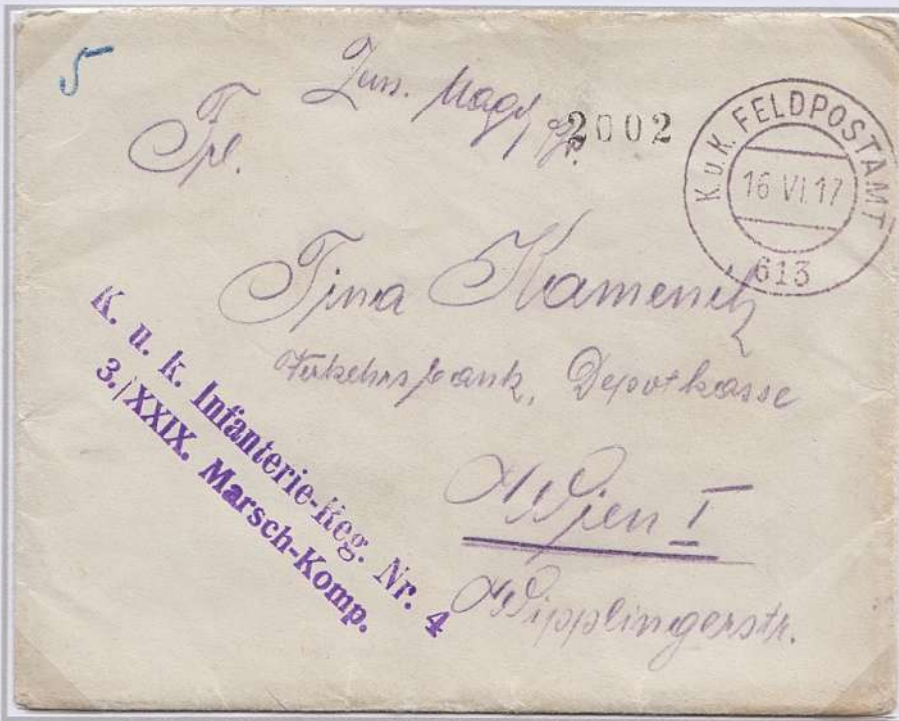 5
2002
K. u. K. FELDPOSTAMT
16 VI. 17
613
Frl.
Kamenitz
Verkehrsbank, Depotkasse
Wien I
Wipplingerstr.
K. u. k. Infanterie-Reg. Nr. 4
3./XXIX. Marsch-Komp.